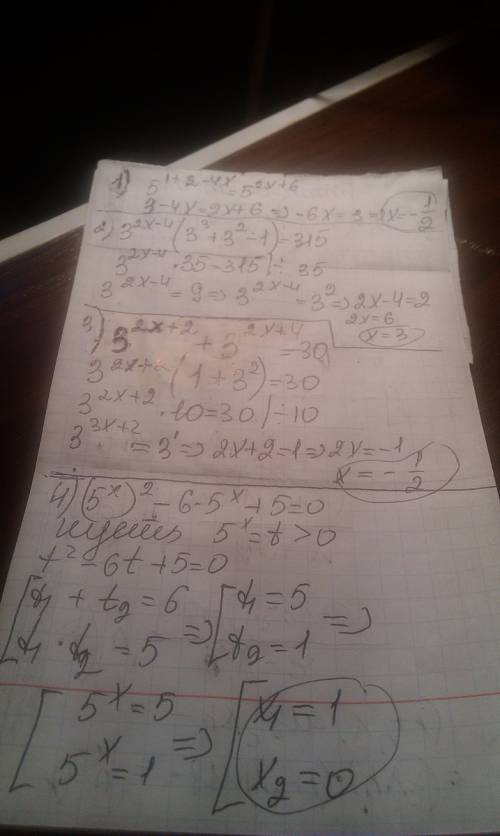 1) 5^{1+2-4x}=5^{2x+6}
3-4x=2x+6 => -6x=3 => x=-\frac{1}{2}
2) 3^{2x-4}(3^3+3^2-1)=315
3^{2x-4}·35=315 | ÷ 35
3^{2x-4}=9 => 3^{2x-4}=3^2 => 2x-4=2
2x=6
x=3
3) 3^{2x+2}+3^{2x+4}=30
3^{2x+2}(1+3^2)=30
3^{2x+2}·10=30 | ÷10
3^{3x+2}=3^1 => 2x+2=1 => 2x=-1
x=-\frac{1}{2}
4) (5^x)^2-6·5^x+5=0
пусть 5^x=t>0
t^2-6t+5=0
[t_1+t_2=6 [t_1=5
[t_1·t_2=5 => [t_2=1 =>
[5^x=5 [x_1=1
[5^x=1 => [x_2=0